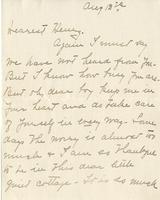 Aug 12th
Dearest Henry,
Again I must say
we have not heard from you
But I know how busy you are.
But oh dear boy keep me in
your heart and do take care
of yourself in every way. Some
days the worry is almost too
much & I am so thankful
to be in this dear little
quiet cottage. so much